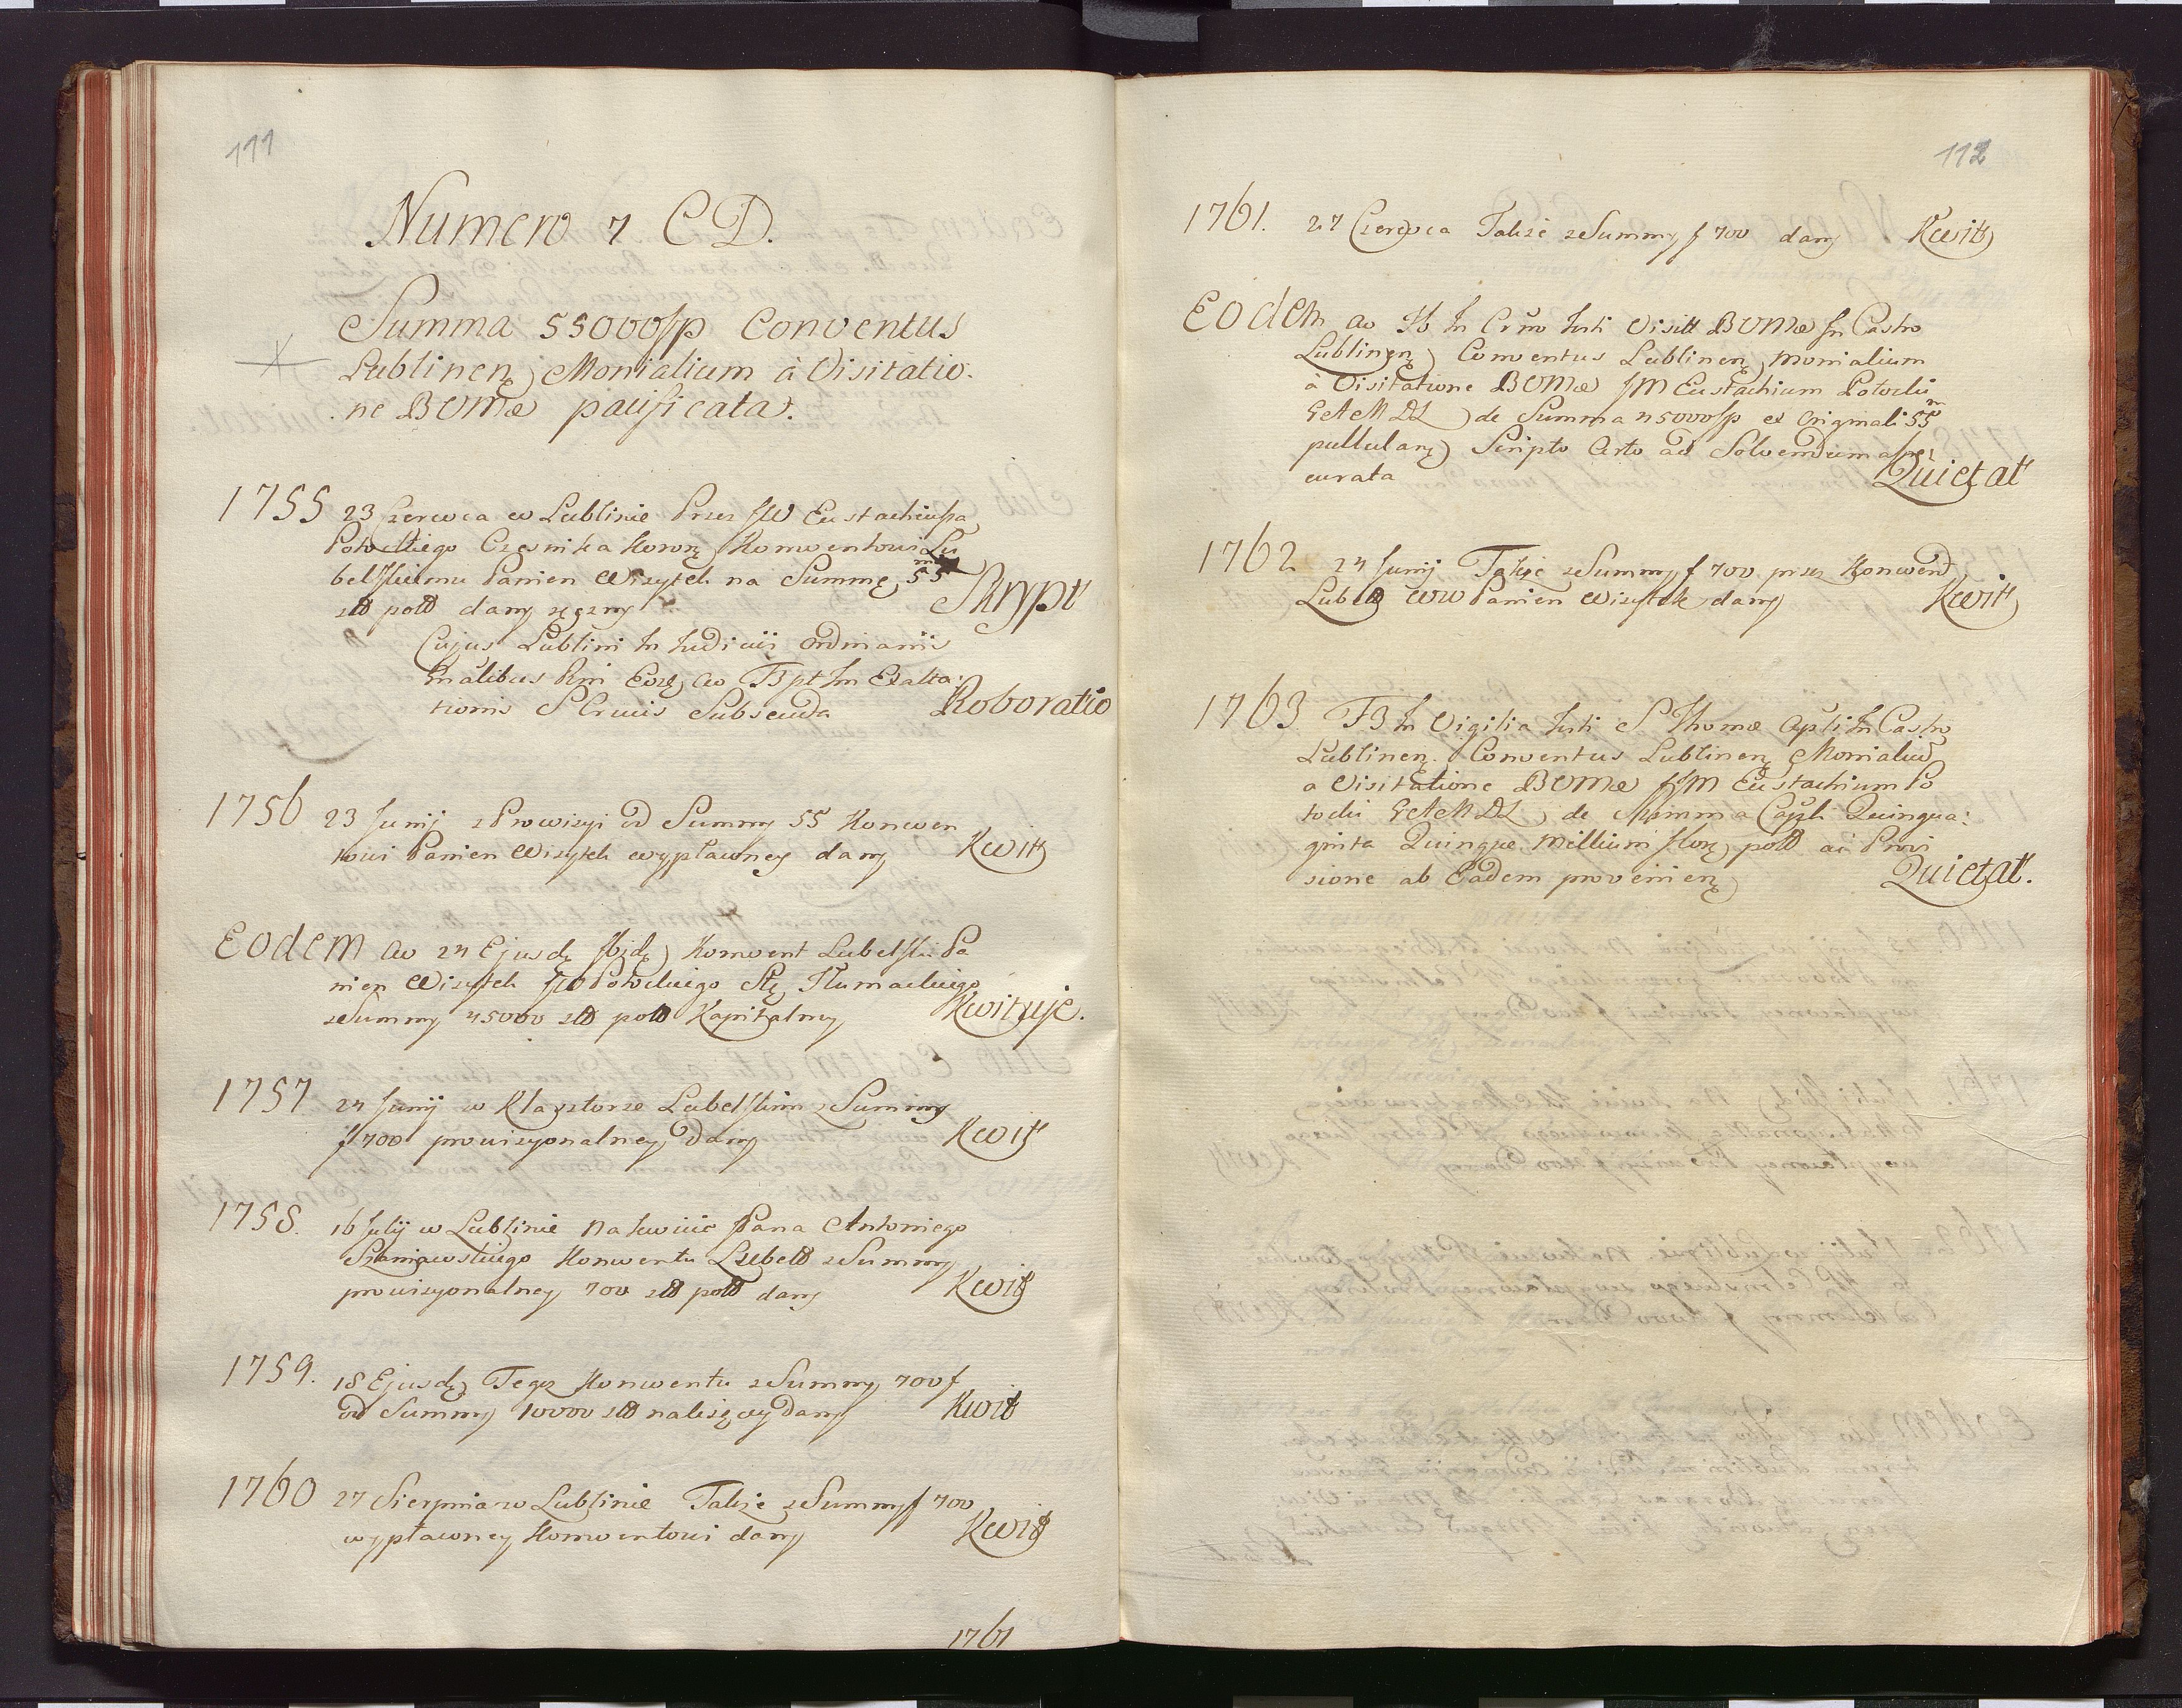 111
Numero 7 CD.
Summa 55000fp Conventus
Lublinen Monialium à Visitatio-
ne BVMæ pacificata.
1755 23 Czerwca w Lublinie Przez JW Eustachiusza
Potockiego Cześnika Koron Konwentowi Lu
belskiemu Panien Wizytek na Summę 55 m
zł pol dany ręczny Skrypt
Cujus Lublini In Judiciis Ordinariis
Gnalibus Rni Eoo FB pt In Exalta:
tionis S Crucis Subsecuta Roboratio
1756 23 Junij z Prowizyi od Summy 55 Konwen
towi Panien Wizytek wypłaconey dany Kwit
Eodem Ao 24 Ejusd Ibid Konwent Lubelski Pa
nien Wizytek JW Potockiego Stę Tłumackiego
z Summy 45000 zł pol Kapitalney Kwituje.
1757 24 Junij w Klasztorze Lubelskim z Summy
f 700 prowizyonalney Dany Kwit
1758. 16 Julij w Lublinie Na kwicie Pana Antoniego
Szaniawskiego Konwentu Lubel z Summy
prowizyonalney 700 zł pol dany Kwit
1759. 18 Ejusd Tegoż Konwentu z Summy 700 f
od Summy 10000 zł należącey dany Kwit
1760 27 Sierpnia w Lublinie Takze z Summy f 700
wypłaconey Konwentowi dany Kwit
1761
112
1761. 27 Czerwca Takze z Summy f 700 dany Kwit
Eodem Ao Sb In Crno festi Visitt BVMæ In Castro
Lublinen Conventus Lublinen Monialium
à Visitatione BVMæ JM Eustachium Potocki
GAMDL de Summa 45000fp ex Originali 55 m
pullulan Scripto Arto ad Solvendum asse
curata Quietat
1762 24 Junij Takze z Summy f 700 przez Konwent
Lubel WW Panien Wizytek dany Kwit
1763 FB In Vigilia festi S Thomæ Apli In Castro
Lublinen. Conventus Lublinen Monialiu
a Visitatione BVMæ JM Eustachium Po
tocki GAMDL de Summa Capli Quinqua:
ginta Quinque Millium flor pol ac Provi
sione ab Eadem provenien Quietat.